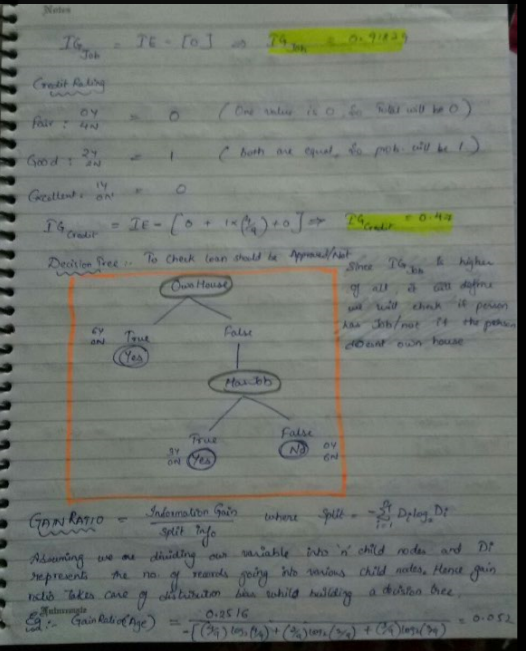 Notes
IG Job = IE - [0] ⇒ IG Job = 0.91829
Credit Rating
Fair : 0Y 4N = 0 ( One value is 0, So Total will be 0 )
Good : 2Y 2N = 1 ( Both are equal, So prob. will be 1. )
Excellent = 1Y 0N = 0
IG Credit = IE - [ 0 + 1×(4/9) + 0 ] ⇒ IG Credit = 0.47
Decision Tree :- To check loan should be Approved/Not
Since IG Job is higher
of all, it will define
we will check if person
has Job/not if the person
doesnt own house
Own House
6Y 0N True False
Yes
Has Job
True False
3Y 0N Yes No 0Y 6N
GAIN RATIO = Information Gain / Split Info where Split = - Σ i=1 n Di log2 Di
Assuming we are dividing our variable into 'n' child nodes and Di
represents the no. of records going into various child nodes. Hence gain
ratio takes care of distribution bias while building a decision tree.
Eg :- Gain Ratio (Age) = 0.2516 = 0.052